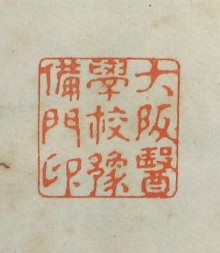 大阪醫
學校豫
備門印